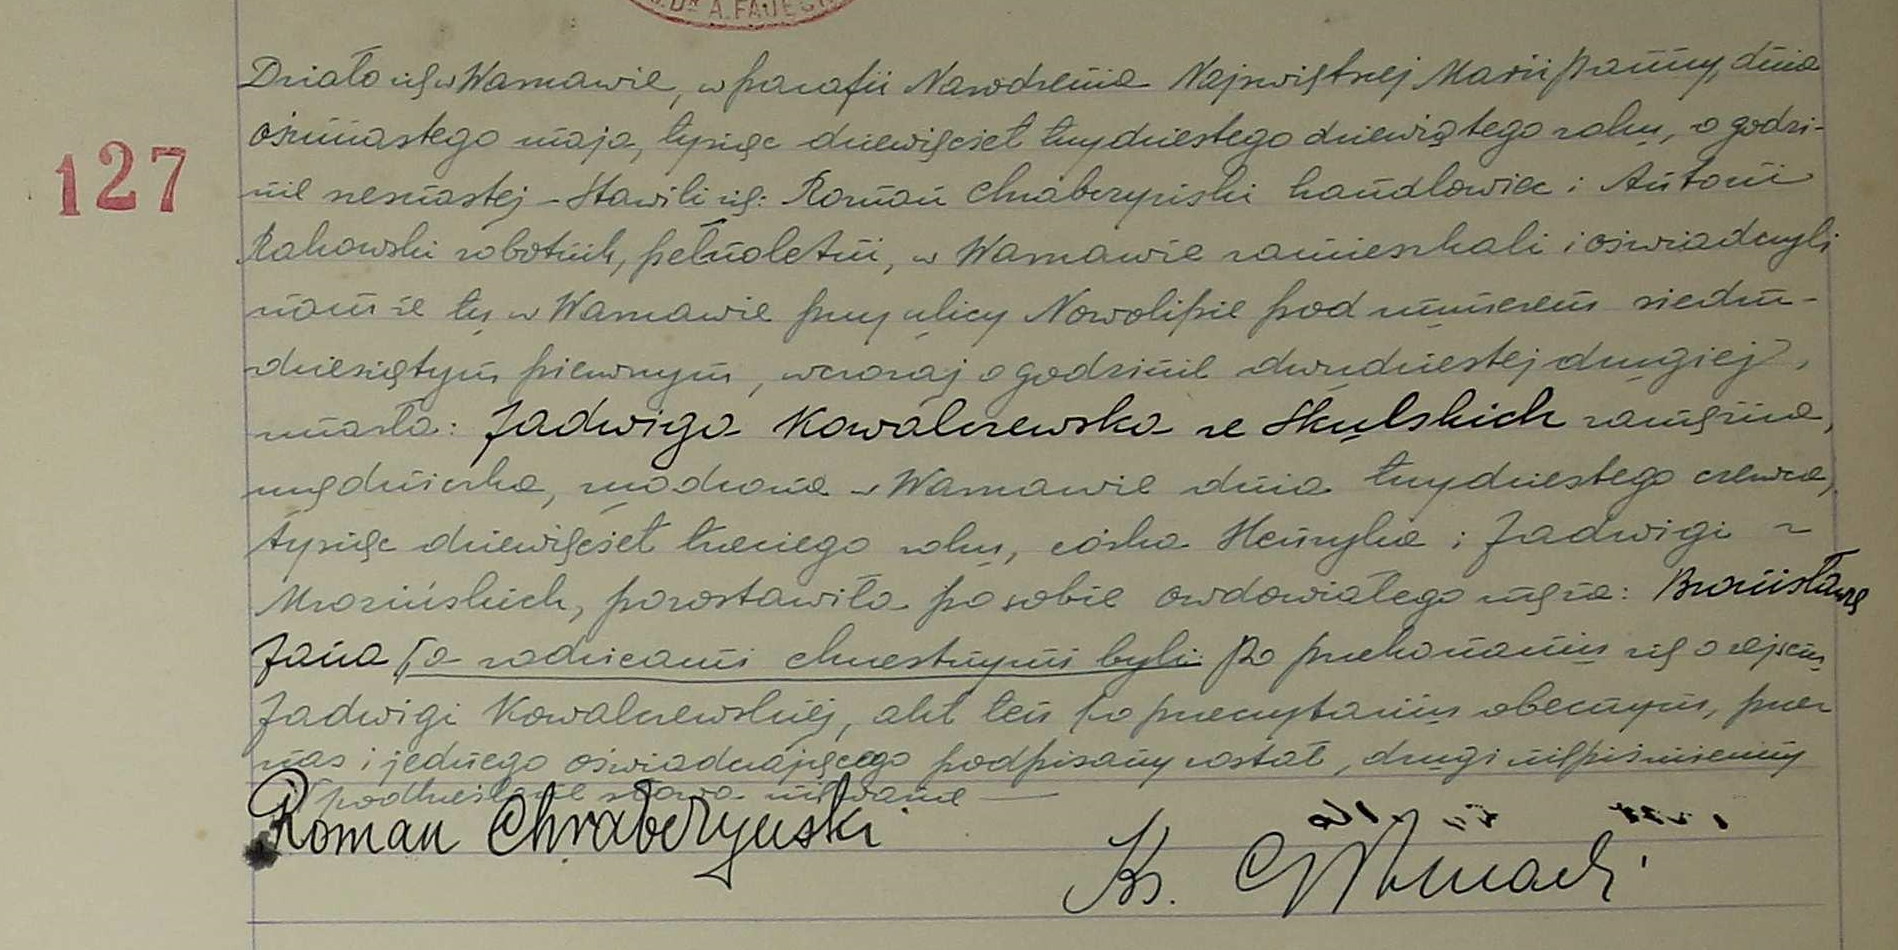 Dr A. FAJĘC
Działo się w Warszawie, w parafii Narodzenia Najświętszej Marii Panny, dnia
127
ośmnastego maja, tysiąc dziewięćset trzydziestego dziewiątego roku, o godzi-
nie szesnastej – Stawili się: Roman Chrabczyński handlowiec i Antoni
Rakowski robotnik, pełnoletni, w Warszawie zamieszkali i oświadczyli
nam że tu w Warszawie przy ulicy Nowolipie pod numerem siedm-
dziesiątym pierwszym, wczoraj o godzinie dwudziestej drugiej,
zmarła: Jadwiga Kowalczewska ze Skulskich zamężna,
urzędniczka, urodzona w Warszawie dnia trzydziestego czerwca,
tysiąc dziewięćset trzeciego roku, córka Henryka i Jadwigi z
Mrozińskich, pozostawiła po sobie owdowiałego męża: Bronisława
Jana [a rodzicami chrzestnymi byli: Po przekonaniu się o zejściu
Jadwigi Kowalczewskiej, akt ten po przeczytaniu obecnym, przez
nas i jednego oświadczającego podpisany został, drugi niepiśmienny
podkreślone słowa nieważne –
Roman Chrabczyński
Ks.